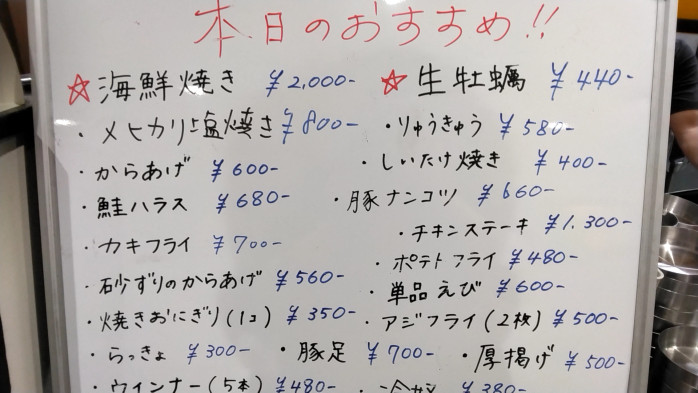 本日のおすすめ!!
☆海鮮焼き ¥2,000- ☆生牡蠣 ¥440-
・メヒカリ塩焼き ¥800- ・りゅうきゅう ¥580-
・からあげ ¥600- ・しいたけ焼き ¥400-
・鮭ハラス ¥680- ・豚ナンコツ ¥660-
・カキフライ ¥700- ・チキンステーキ ¥1,300-
・砂ずりのからあげ ¥560- ・ポテトフライ ¥480-
・焼きおにぎり(1コ) ¥350- ・単品えび ¥600-
・アジフライ(2枚) ¥500-
・らっきょ ¥300- ・豚足 ¥700- ・厚揚げ ¥500-
・ウインナー(5本) ¥480- ・冷奴 ¥380-